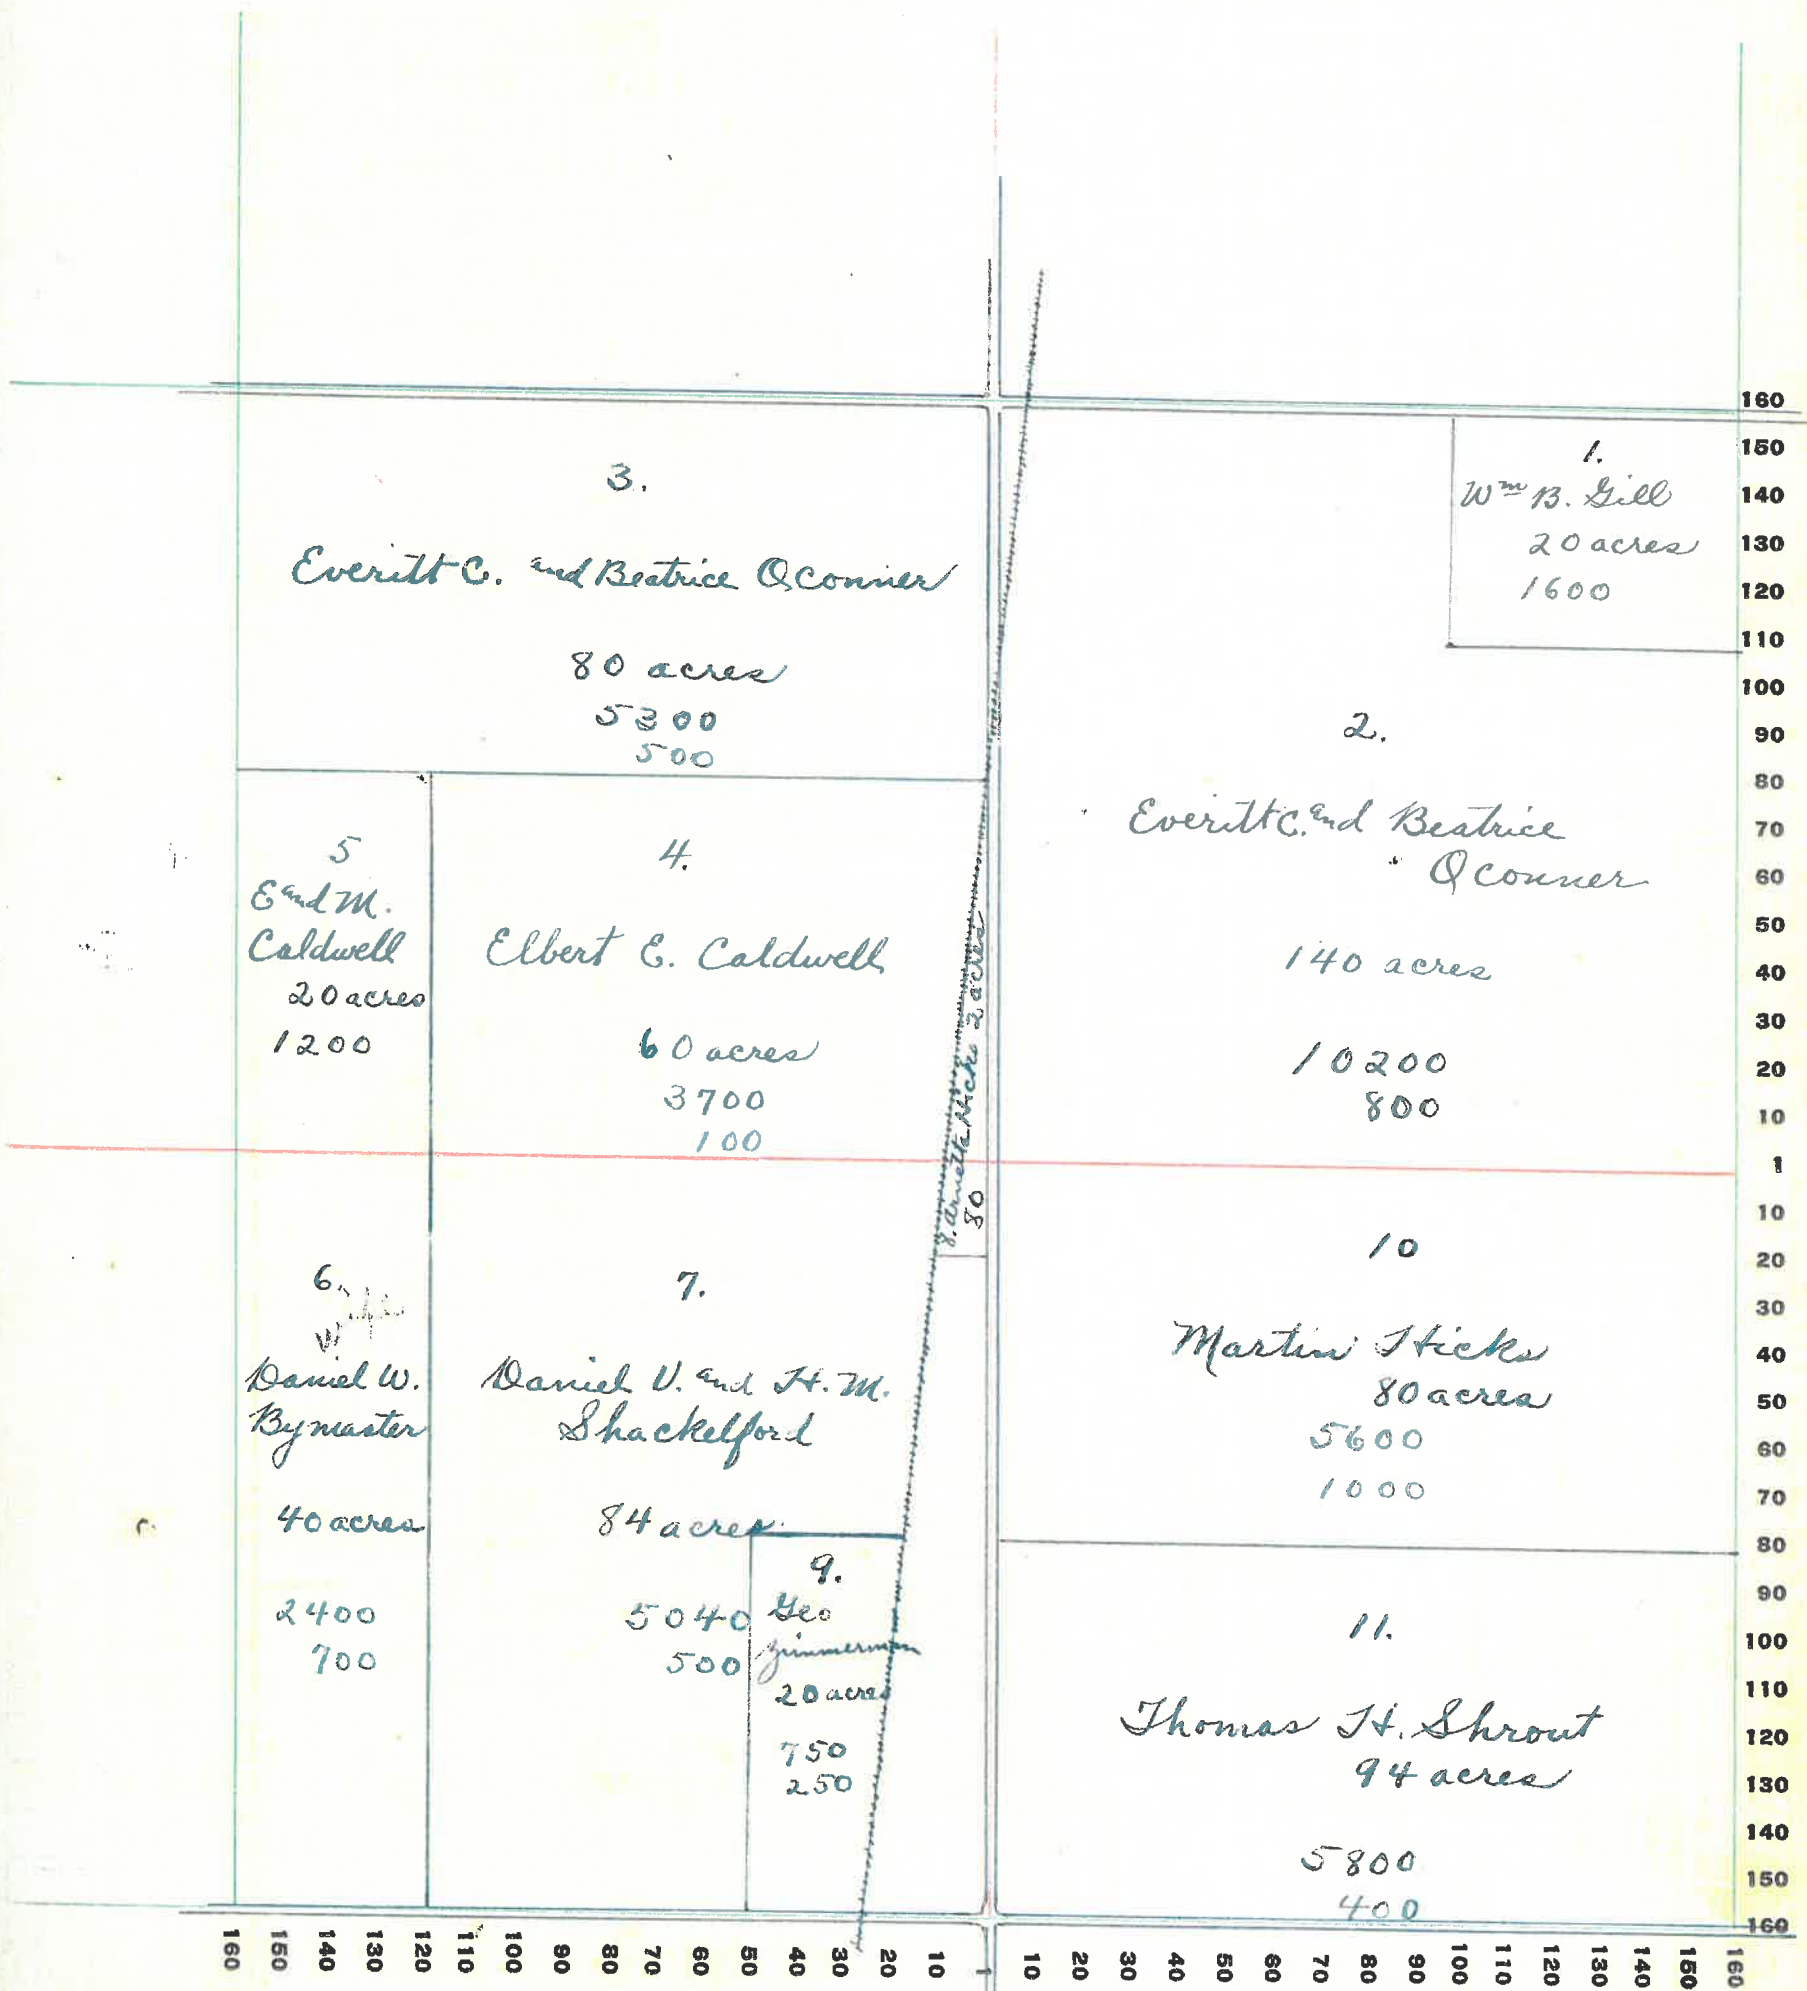 3.
Everitt C. and Beatrice Oconner
80 acres
5300
500
1.
Wm B. Gill
20 acres
1600
2.
Everitt C. and Beatrice
Oconner
140 acres
10200
800
5
E and M.
Caldwell
20 acres
1200
4.
Elbert E. Caldwell
60 acres
3700
100
8. Arnetta Hicks 2 acres
80
6.
Daniel W.
Bymaster
40 acres
2400
700
7.
Daniel V. and H. M.
Shackelford
84 acres
5040
500
9.
Geo
Zimmerman
20 acres
750
250
10
Martin Hicks
80 acres
5600
1000
11.
Thomas H. Shrout
94 acres
5800
400
160
150
140
130
120
110
100
90
80
70
60
50
40
30
20
10
1
10
20
30
40
50
60
70
80
90
100
110
120
130
140
150
160
160 150 140 130 120 110 100 90 80 70 60 50 40 30 20 10 1 10 20 30 40 50 60 70 80 90 100 110 120 130 140 150 160